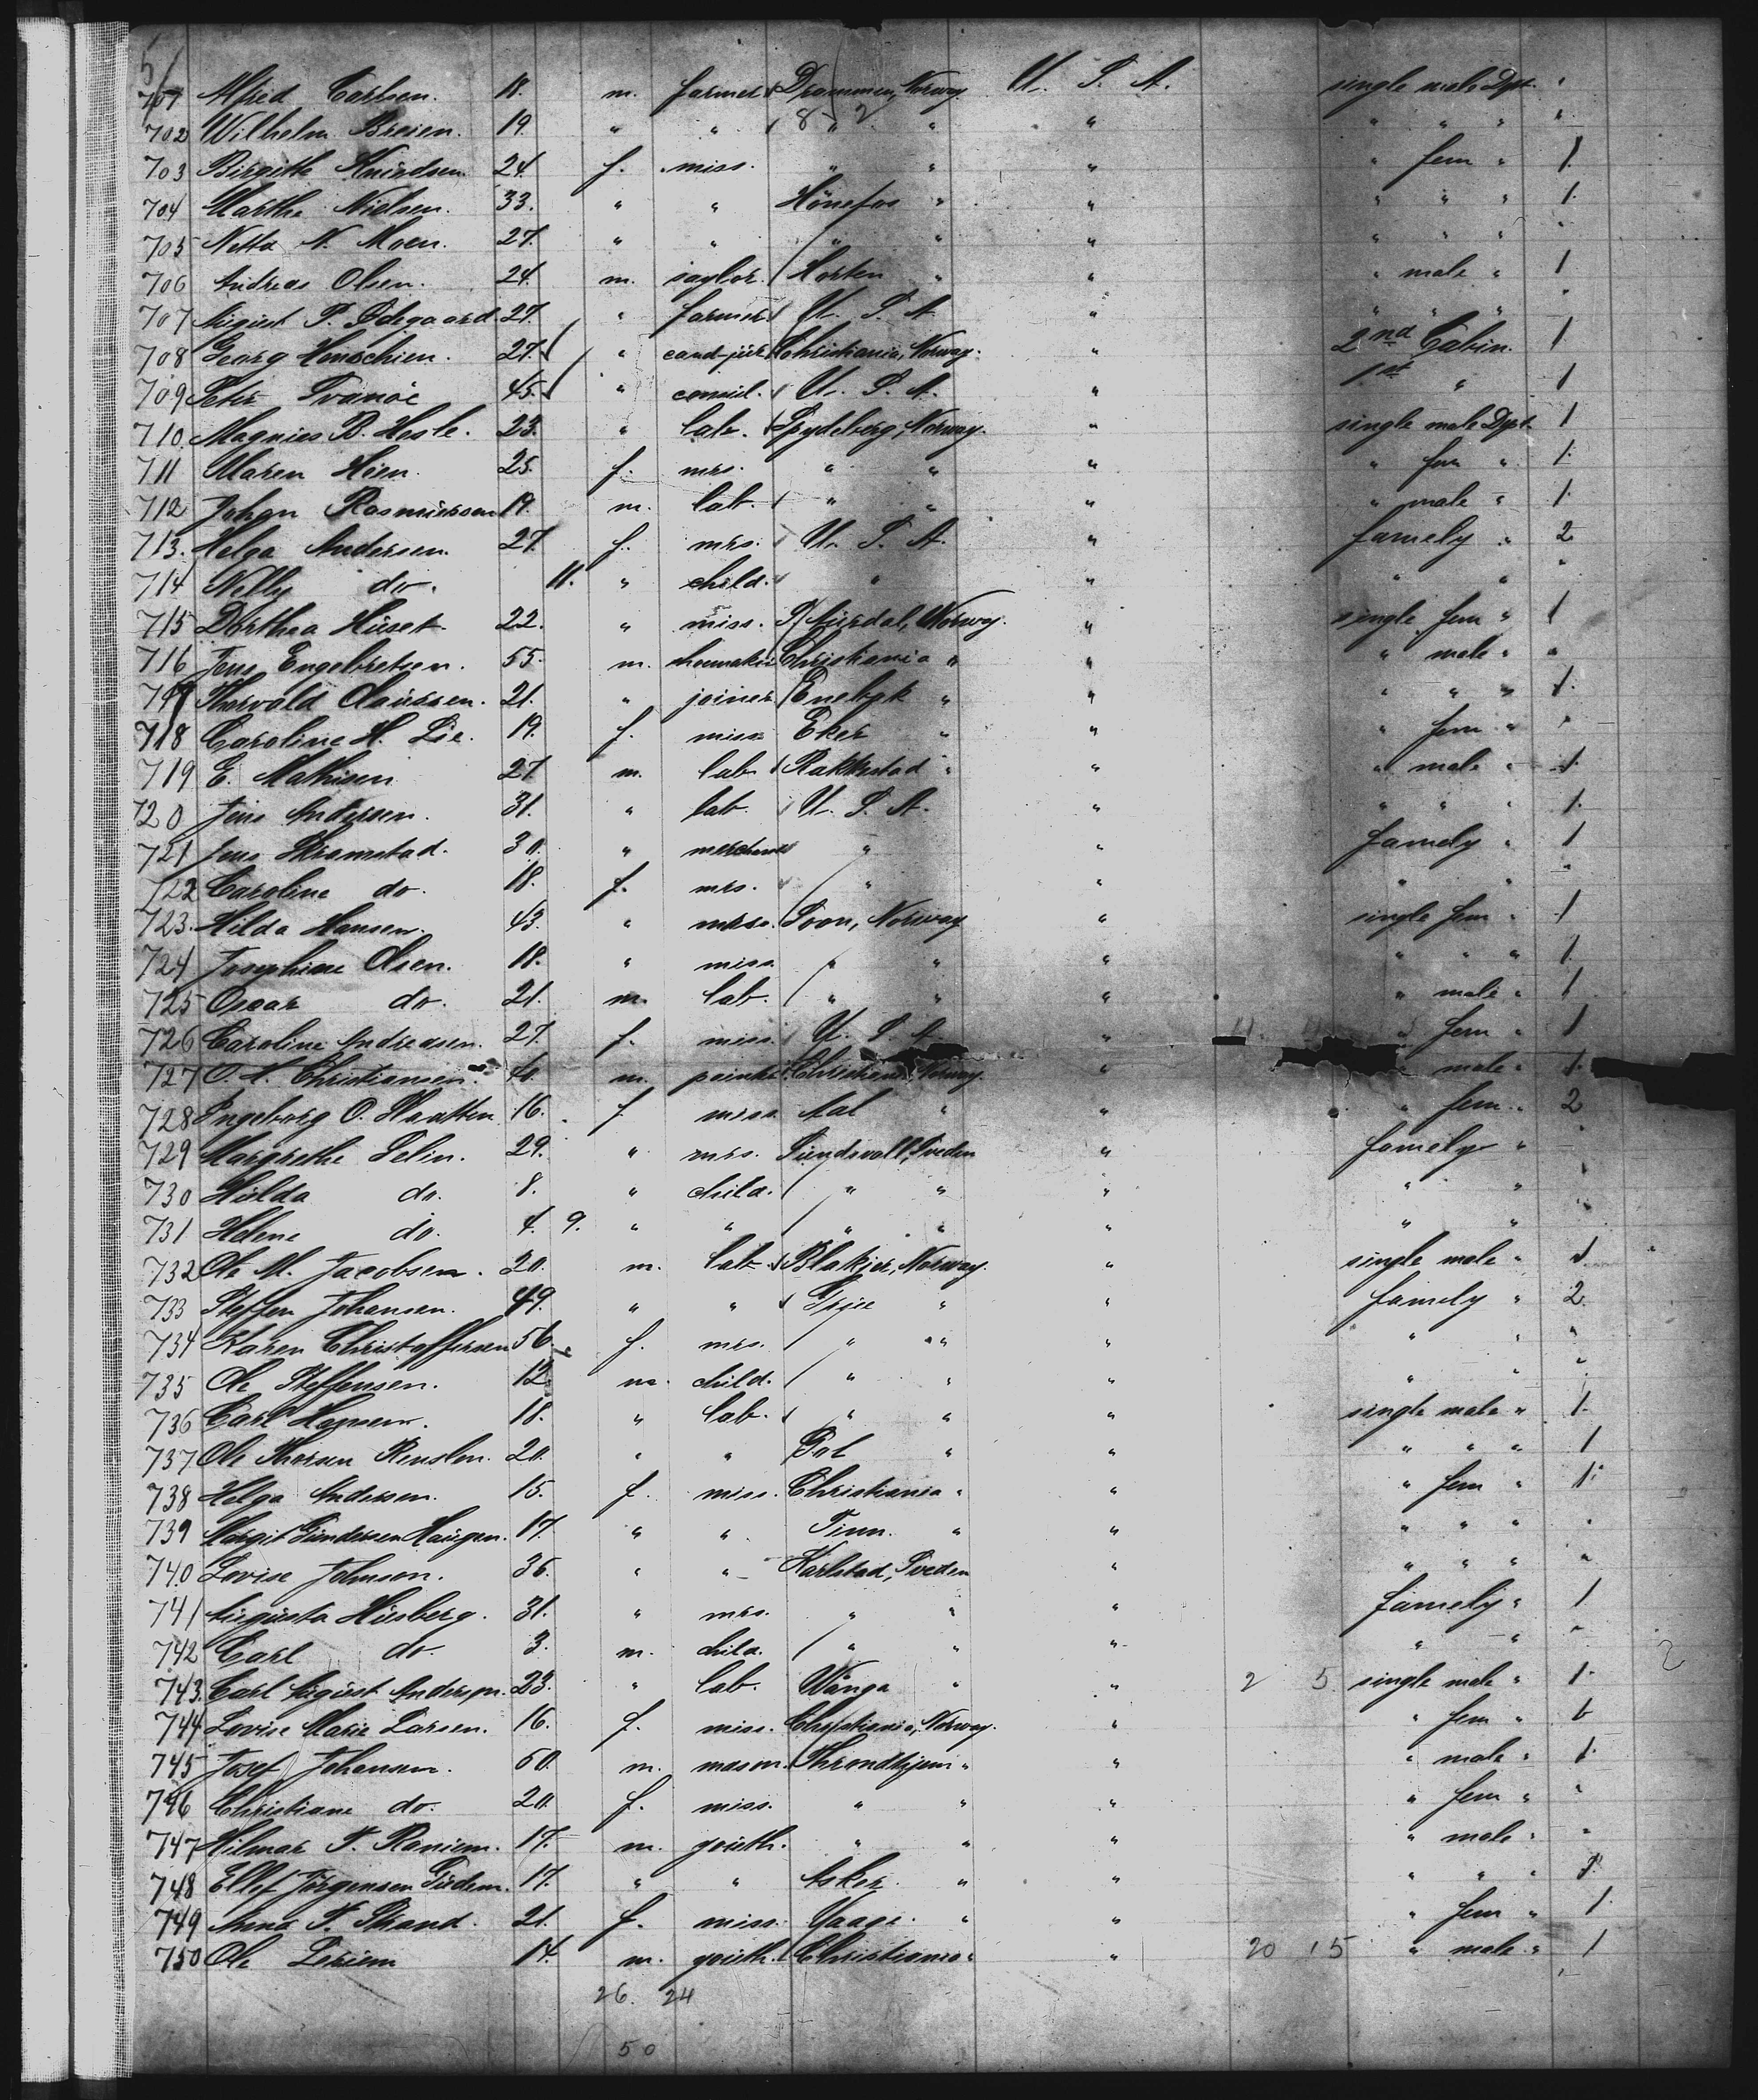 5/
701 Alfred Carlsen. 18. m. farmer Drammen, Norway. U. S. A. single male Dpt. "
8 - 2
702 Wilhelm Breien. 19. " " " " " " " " "
703 Birgithe Knudsen 24. f. miss. " " " " fem " 1.
704 Marthe Nielsen. 33. " " Hönefos " " " " " 1.
705 Netta N. Moen. 27. " " " " " " " " "
706 Andreas Olsen. 24. m. saylor. Horten " " " male " 1
707 August P. Ödegaard. 27. " farmer U. S. A. " " " " "
708 Georg Henschien. 27. " cand-jur Christiania, Norway. " 2nd Cabin. 1
709 Peter Svanöe 45. " consul. U. S. A. " 1st " 1
710. Magnus B. Hesle. 23. " lab. Spydeberg, Norway. " single male Dpt. 1
711 Maren Höen. 25. f. mrs. " " " " fem " 1.
712 Johan Rasmussen 19. m. lab. " " " " male " 1.
713. Helga Andersen. 27. f. mrs. U. S. A. " famely " 2
714 Nelly do. 11. " child. " " " " "
715 Dorthea Huset. 22. " miss. S/ Aurdal, Norway. " single fem " 1
716 Jens Engebretsen. 55. m. shoemaker Christiania " " " male " "
717 Thorvald Claussen. 21. " joiner Enebyk " " " " " 1.
718 Caroline H. Lie. 19. f. miss Eker " " " fem " "
719 E. Mathisen 27 m. lab. Rakkestad " " " male " 1.
720 Jens Andersen. 31. " lab. U. S. A. " " " " 1.
721 Jens Skramstad. 30. " merchant " " famely " 1
722 Caroline do. 18. f. mrs. " " " " "
723. Hilda Hansen. 43. " mrs. Soon, Norway " single fem " 1
724 Josephine Olsen. 18. " miss " " " " " " 1.
725 Oscar do. 21. m. lab. " " " " male " 1
726 Caroline Andreasen. 27. f. miss. U. S. A. " 11. " fem " 1
727 O. A. Christiansen. 40. m. painter Christiania, Norway. " " male " 1.
728 Ingeborg O. 16. f. miss Aal " " " fem " 2
729 Margrethe Selin. 29. " mrs. Sundsvall, Sveden " famely " "
730 Hulda do. 8. " child. " " " " " "
731 Helene do. 4. 9. " " " " " " " "
732 Ole M. Jacobsen. 20. m. lab. Blakjer, Norway. " single male " 1.
733 Steffen Johansen. 49. " " " " famely " 2.
734 Karen Christoffersen 56. f. mrs. " " " " " "
735 Ole Steffensen. 12. m. child. " " " " " "
736 Carl Hansen. 18. " lab. " " " single male " 1.
737 Ole Thorsen 20. " " Gol " " " " " 1
738 Helga Andersen. 15. f. miss. Christiania " " " fem " 1.
739 Margit Gundersen Haugen. 17. " " Tinn. " " " " " "
740 Lovise Johnson. 36. " " Karlstad, Sveden " " " " "
741 Augusta Husberg. 31. " mrs. " " " famely " 1.
742 Carl do. 3. m. child. " " " " " "
743. Carl August Anderson. 23. " lab. Wånga " " 2 5 single male " 1.
744 Lovise Marie Larsen. 16. f. miss. Christiania, Norway. " " fem " 6
745 Josef Johansen. 60. m. mason. Throndhjem " " " male " 1.
746 Christiane do. 20. f. miss. " " " " fem " "
747 Hilmar F. Raniem. 17. m. youth. " " " " male " "
748 Ellef Jörgensen 17. " " Asker. " " " " " 1.
749 Anna F. Strand. 21. f. miss. Vaage. " " " fem " 1.
750 Ole 14. m. youth. Christiania " " 20 15 " male " 1
26. 24
50